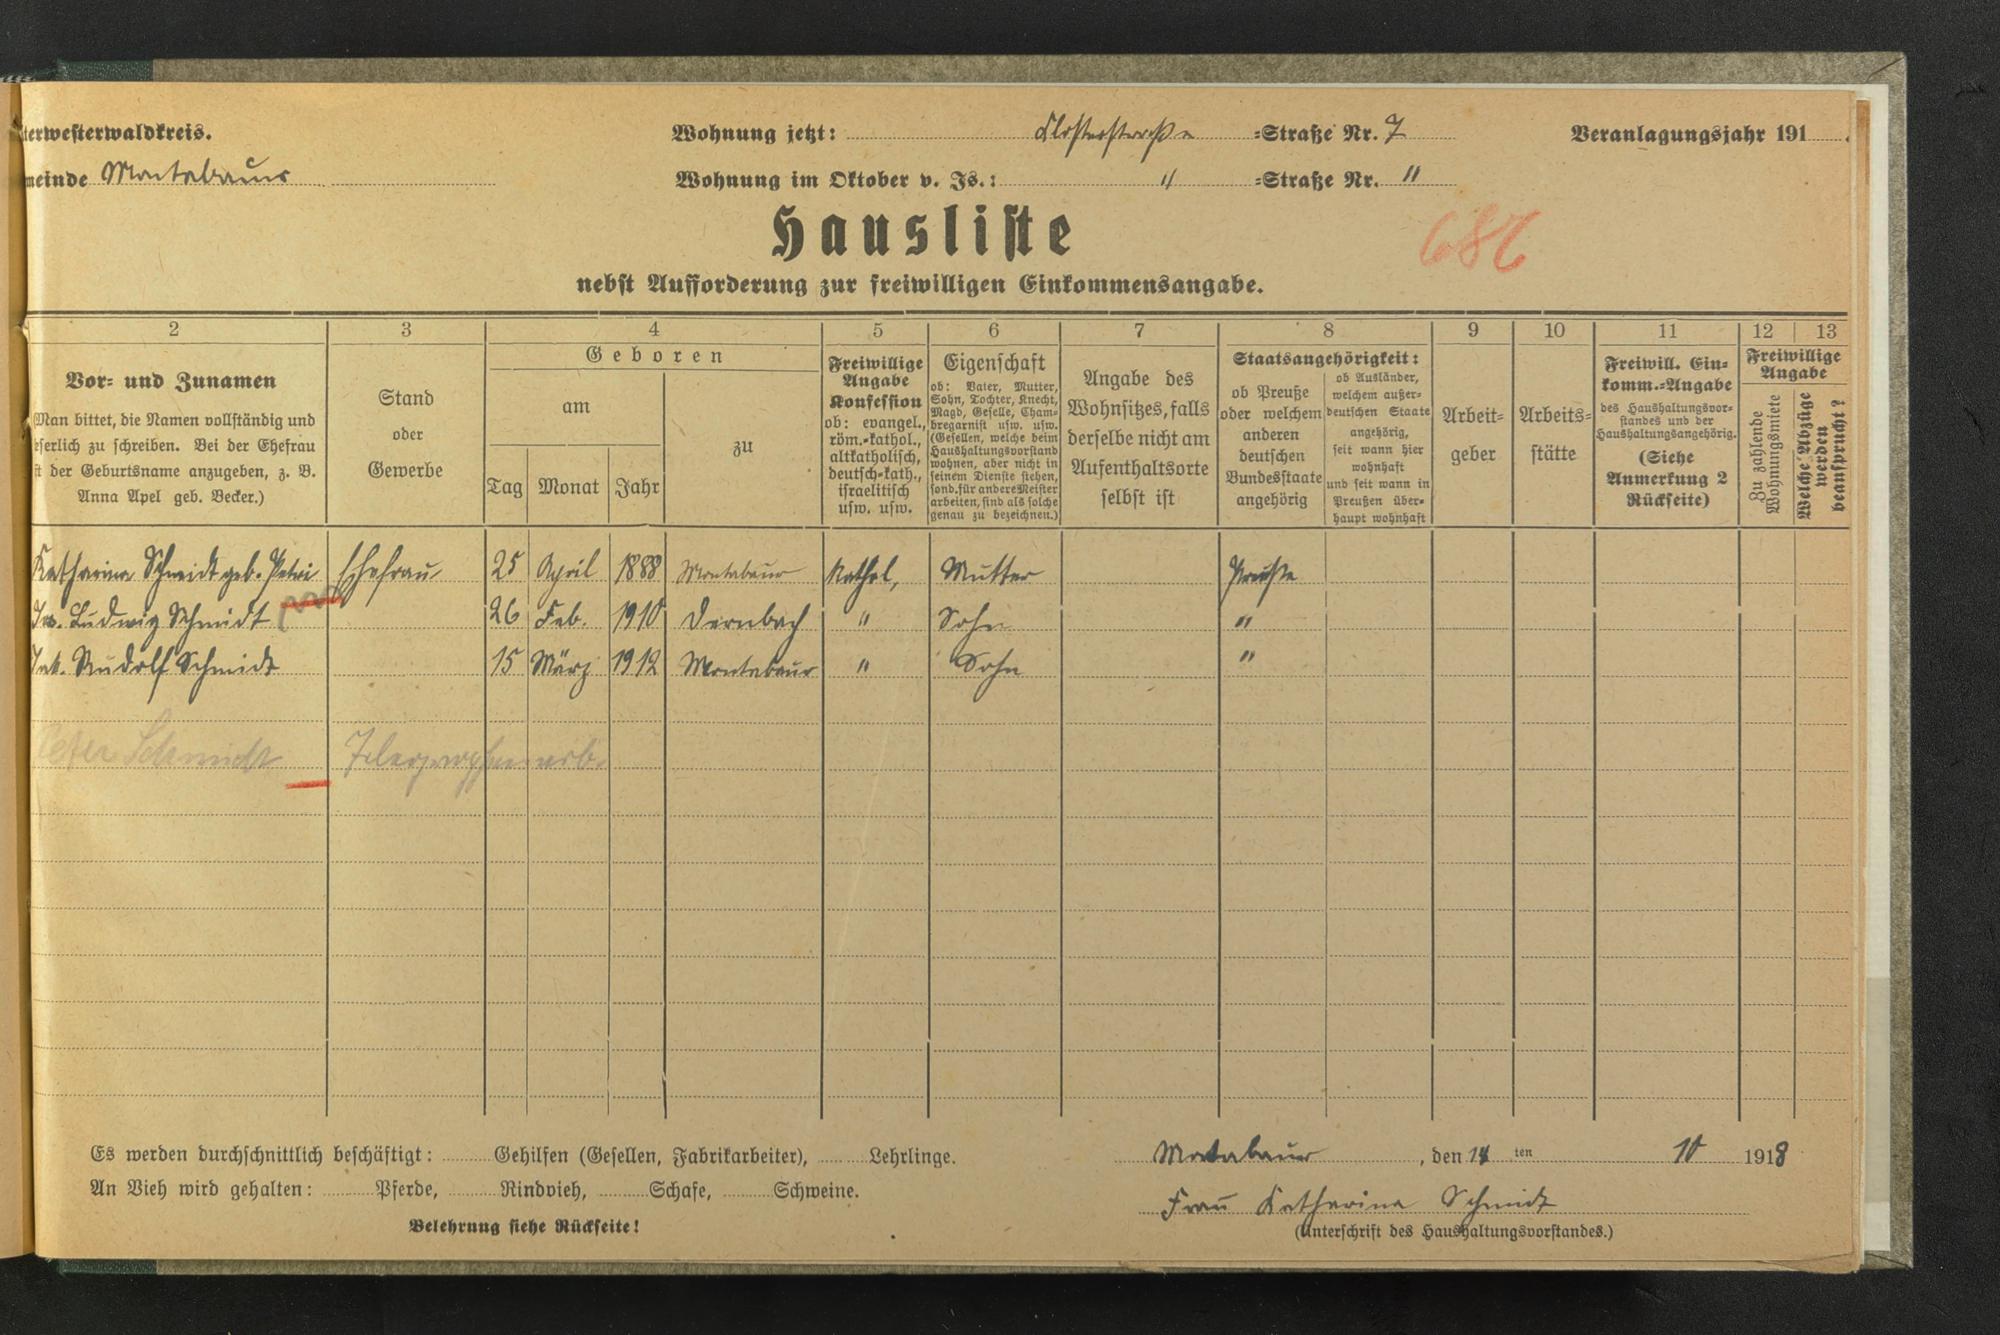 terwesterwaldkreis.
Wohnung jetzt: Klosterstraße =Straße Nr. 7
Veranlagungsjahr 191 .
meinde Montabaur
Wohnung im Oktober v. Js.: " =Straße Nr. "
Hausliste
686
nebst Aufforderung zur freiwilligen Einkommensangabe.
2 3 4 5 6 7 8 9 10 11 12 13
Vor= und Zunamen
(Man bittet, die Namen vollständig und
eserlich zu schreiben. Bei der Ehefrau
st der Geburtsname anzugeben, z. B.
Anna Apel geb. Becker.)
Stand
oder
Gewerbe
Geboren
am
Tag Monat Jahr
zu
Freiwillige
Angabe
Konfession
ob: evangel.,
röm.=kathol.,
altkatholisch,
deutsch=kath.,
israelitisch
usw. usw.
Eigenschaft
ob: Vater, Mutter,
Sohn, Tochter, Knecht,
Magd, Geselle, Cham=
bregarnist usw. usw.
(Gesellen, welche beim
Haushaltungsvorstand
wohnen, aber nicht in
seinem Dienste stehen,
sond. für andere Meister
arbeiten, sind als solche
genau zu bezeichnen.)
Angabe des
Wohnsitzes, falls
derselbe nicht am
Aufenthaltsorte
selbst ist
Staatsangehörigkeit:
ob Preuße
oder welchem
anderen
deutschen
Bundesstaate
angehörig
ob Ausländer,
welchem außer=
deutschen Staate
angehörig,
seit wann hier
wohnhaft
und seit wann in
Preußen über=
haupt wohnhaft
Arbeit=
geber
Arbeits=
stätte
Freiwill. Ein=
komm.=Angabe
des Haushaltungsvor=
standes und der
Haushaltungsangehörig.
(Siehe
Anmerkung 2
Rückseite)
Freiwillige
Angabe
Zu zahlende
Wohnungsmiete
Welche Abzüge
werden
beansprucht?
Katharina Schmidt geb. Petri Ehefrau 25 April 1888 Montabaur Kathol, Mutter Preuße
Ludwig Schmidt 26 Feb. 1910 Dernbach " Sohn "
Rudolf Schmidt 15 März 1912 Montabaur " Sohn "
Peter Schmidt Telegraphenarb.
Es werden durchschnittlich beschäftigt: Gehilfen (Gesellen, Fabrikarbeiter), Lehrlinge.
Montabaur, den 14 ten 10 1918
An Vieh wird gehalten: Pferde, Rindvieh, Schafe, Schweine.
Frau Katharina Schmidt
Belehrung siehe Rückseite!
(Unterschrift des Haushaltungsvorstandes.)